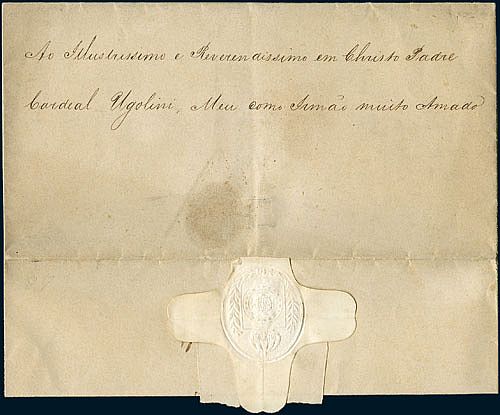 Ao Illustrissimo e Reverendissimo em Christo Padre
Cardeal Ugolini, Meu como Irmão muito Amado